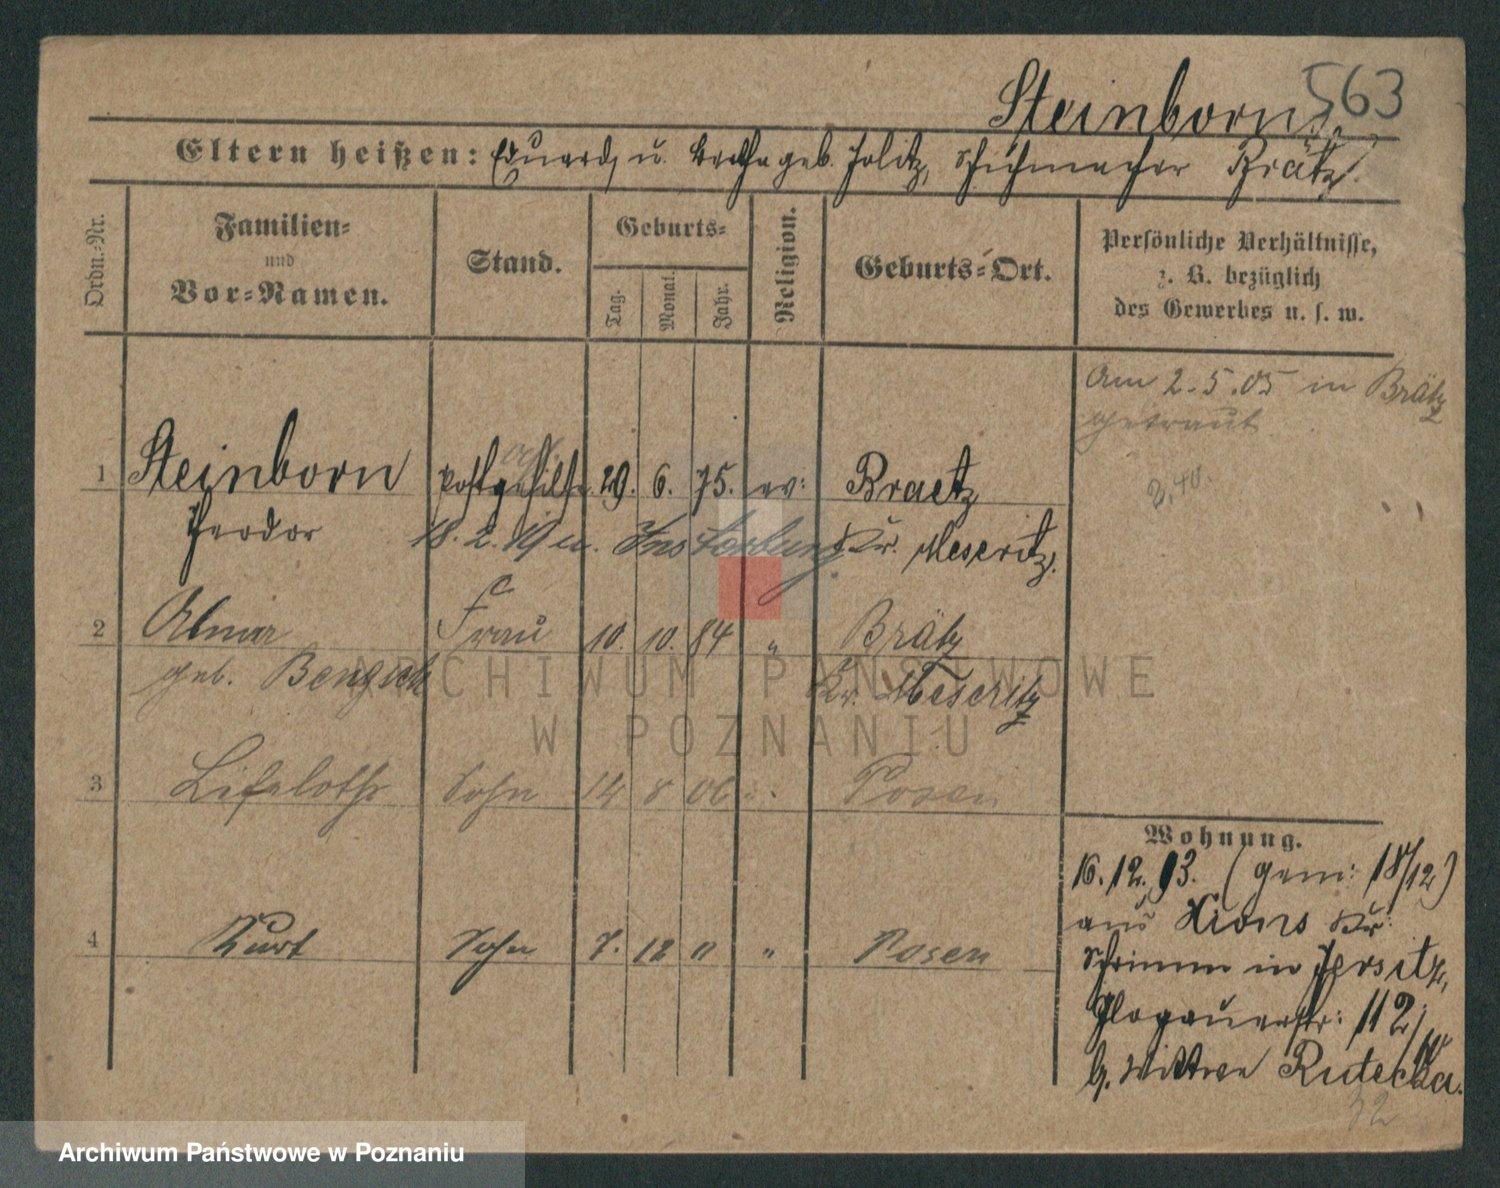 563
Steinborn
Eltern heißen: Eduard, u. Bertha geb. Jolitz, Schuhmacher Brätz.
Ordn.-Nr.
Familien-
und
Vor-Namen.
Stand.
Geburts-
Tag.
Monat.
Jahr.
Religion.
Geburts-Ort.
Persönliche Verhältnisse,
z. B. bezüglich
des Gewerbes u. s. w.
am 2.5.05 in Brätz
getraut
1 Steinborn Postgehilfe 29. 6. 75. ev: Braetz
Theodor
18.2.19 u. Insterburg
Kr. Meseritz.
2 Frau 10. 10. 84 " Brätz
geb. Bengsch
Kr. Meseritz
3 Sohn 14 8 06 Posen
4 Kurt Sohn 7. 12 " " Posen
Wohnung.
16.12.93. (gem: 18/12)
aus Xions Kr:
Schrimm in Jersitz,
Glogauerstr: 112
b. Wittwe Rutecka.
32
ARCHIWUM PAŃSTWOWE
W POZNANIU
Archiwum Państwowe w Poznaniu